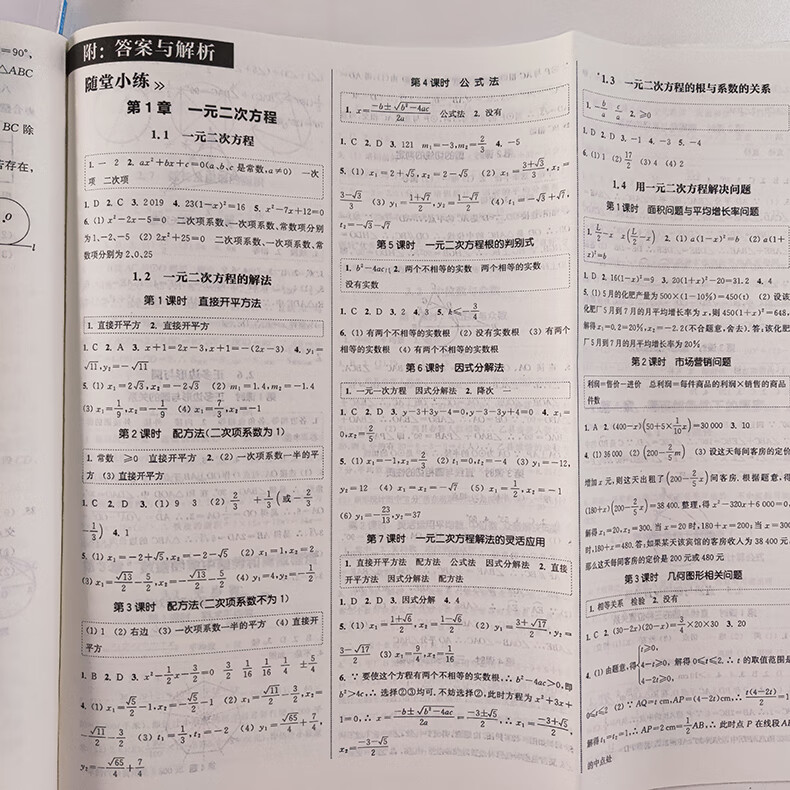 =90°,
△ABC
BC 除
存在,
O
附：答案与解析
随堂小练 >>
第1章 一元二次方程
1.1 一元二次方程
1. 一 2 2. ax²+bx+c=0(a、b、c 是常数,a≠0) 一次
项 二次项
1. D 2. C 3. 2 019 4. 23(1-x)²=16 5. x²-7x+12=0
6. (1) x²-2x-5=0 二次项系数、一次项系数、常数项分别
为1、-2、-5 (2) 2x²+25=0 二次项系数、一次项系数、常
数项分别为2、0、25
1.2 一元二次方程的解法
第1课时 直接开平方法
1. 直接开平方 2. 直接开平方
1. C 2. A 3. x+1=2x-3,x+1=-(2x-3) 4. y₁=
√11,y₂=-√11
5. (1) x₁=2√3,x₂=-2√3 (2) m₁=1.4,m₂=-1.4
(3) x₁=1/9,x₂=-1/9 (4) x₁=7/3,x₂=-1
第2课时 配方法(二次项系数为1)
1. 常数 ≥0 直接开平方 2. (2) 一次项系数一半的平
方 (3) 直接开平方
1. C 2. D 3. (1) 9 3 (2) 2/3 +1/3(或-2/3
-1/3) 4. 1
5. (1) x₁=-2+√5,x₂=-2-√5 (2) x₁=1,x₂=2
(3) x₁=√13/2-5/2,x₂=-√13/2-5/2 (4) y₁=4,y₂=-1/2
第3课时 配方法(二次项系数不为1)
(1) 1 (2) 右边 (3) 一次项系数一半的平方 (4) 直接开
平方
1. B 2. D 3. x²-1/2x-3/2=0 3/2 1/16 1/16 1/4 ±5/4
4. (1) x₁=√5/2-1,x₂=-√5/2-1 (2) x₁=√11/2-3/2,x₂=
-√11/2-3/2 (3) t₁=3,t₂=1/2 (4) y₁=√65/4+7/4,
y₂=-√65/4+7/4
第4课时 公式法
1. x=(-b±√(b²-4ac))/2a 公式法 2. 没有
1. C 2. D 3. 121 m₁=-3,m₂=2/3 4. -5
5. (1) x₁=2+√5,x₂=2-√5 (2) x₁=(3+√3)/3,x₂=
(3-√3)/3 (3) y₁=(1+√7)/2,y₂=(1-√7)/2 (4) t₁=-√3+√7,
t₂=-√3-√7
第5课时 一元二次方程根的判别式
1. b²-4ac 2. 两个不相等的实数 两个相等的实数
没有实数
1. C 2. D 3. 2 4. 3 5. k≤-3/4
6. (1) 有两个不相等的实数根 (2) 没有实数根 (3) 有两个
相等的实数根 (4) 有两个不相等的实数根
第6课时 因式分解法
1. 一元一次方程 因式分解法 2. 降次 一
1. C 2. D 3. y-3+3y-4=0,y-3-3y+4=0 4. x₁=
0,x₂=2/5
5. (1) x₁=-1,x₂=2/3 (2) t₁=0,t₂=-4 (3) y₁=-12,
y₂=12 (4) x₁=x₂=-√7 (5) x₁=1/2,x₂=-1
(6) y₁=-23/13,y₂=37
第7课时 一元二次方程解法的灵活应用
1. 直接开平方法 配方法 公式法 因式分解法 2. 直接
开平方法 因式分解法 配方法
1. D 2. D 3. 因式分解 4. 4
5. (1) x₁=(1+√6)/2,x₂=(1-√6)/2 (2) y₁=(3+√17)/2,y₂=
(3-√17)/2 (3) x₁=9/4,x₂=1/16
6. ∵要使这个方程有两个不相等的实数根,∴b²-4ac>0,即
b²>4c,∴选择②③均可,不妨选择②,此时方程为x²+3x+
1=0,∴x=(-b±√(b²-4ac))/2a=(-3±√5)/2,∴x₁=(-3+√5)/2,
x₂=(-3-√5)/2
1.3 一元二次方程的根与系数的关系
1. -b/a c/a 2. ≥0
1. D 2. D 3. -1 4. -3 5. -4
6. (1) 1 (2) 17/2 (3) 4 (4) 2
1.4 用一元二次方程解决问题
第1课时 面积问题与平均增长率问题
1. L/2-x x(L/2-x) 2. (1) a(1-x)²=b (2) a(1+
x)²=b
1. D 2. 16(1-x)²=9 3. 20(1+x)²-20=31.2 4. 4
5. (1) 5月的化肥产量为500×(1-10%)=450(t) (2) 设该
化肥厂5月到7月的月平均增长率为x,则450(1+x)²=648,
解得x₁=0.2=20%,x₂=-2.2(不合题意,舍去).答:该化肥
厂5月到7月的月平均增长率为20%
第2课时 市场营销问题
利润=售价-进价 总利润=每件商品的利润×销售的商品
件数
1. A 2. (400-x)(50+5×1/10x)=30 000 3. 10
4. (1) 36 000 (2) (200-2/5m) (3) 设这天每间客房的定价
增加x元,则这天出租了(200-2/5x)间客房.根据题意,得
(180+x)(200-2/5x)=38 400.整理,得x²-320x+6 000=0,
解得x₁=20,x₂=300.当x=20时,180+x=200;当x=300
时,180+x=480.答:如果某天该宾馆的客房收入为38 400元,
那么这天每间客房的定价是200元或480元
第3课时 几何图形相关问题
1. 相等关系 检验 2. 没有
1. C 2. (30-2x)(20-x)=3/4×20×30 3. 20
4. (1) 由题意,得{t≥0, 4-t≥0, 4-2t≥0, 解得0≤t≤2,∴t的取值范围是
0≤t≤2 (2) ∵AQ=t cm,AP=(4-2t)cm,∴t(4-2t)/2=1
解得t₁=t₂=1,∴AP=2 cm=1/2AB,∴此时点P在线段AB
的中点处